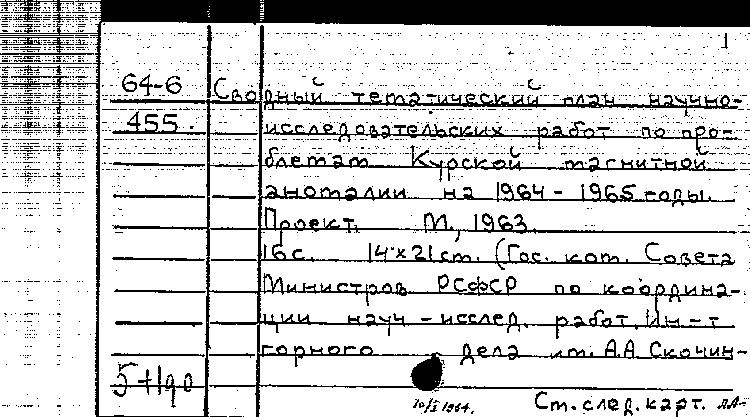 1
64-6 Сводный тематический план научно-
455. исследовательских работ по про-
блемам Курской магнитной
аномалии на 1964-1965 годы.
Проект. М., 1963.
16 с. 14×21 см. (Гос. ком. Совета
Министров РСФСР по координа-
ции науч-исслед. работ. Ин-т
горного дела им. А.А Скочин-
См. след. карт.